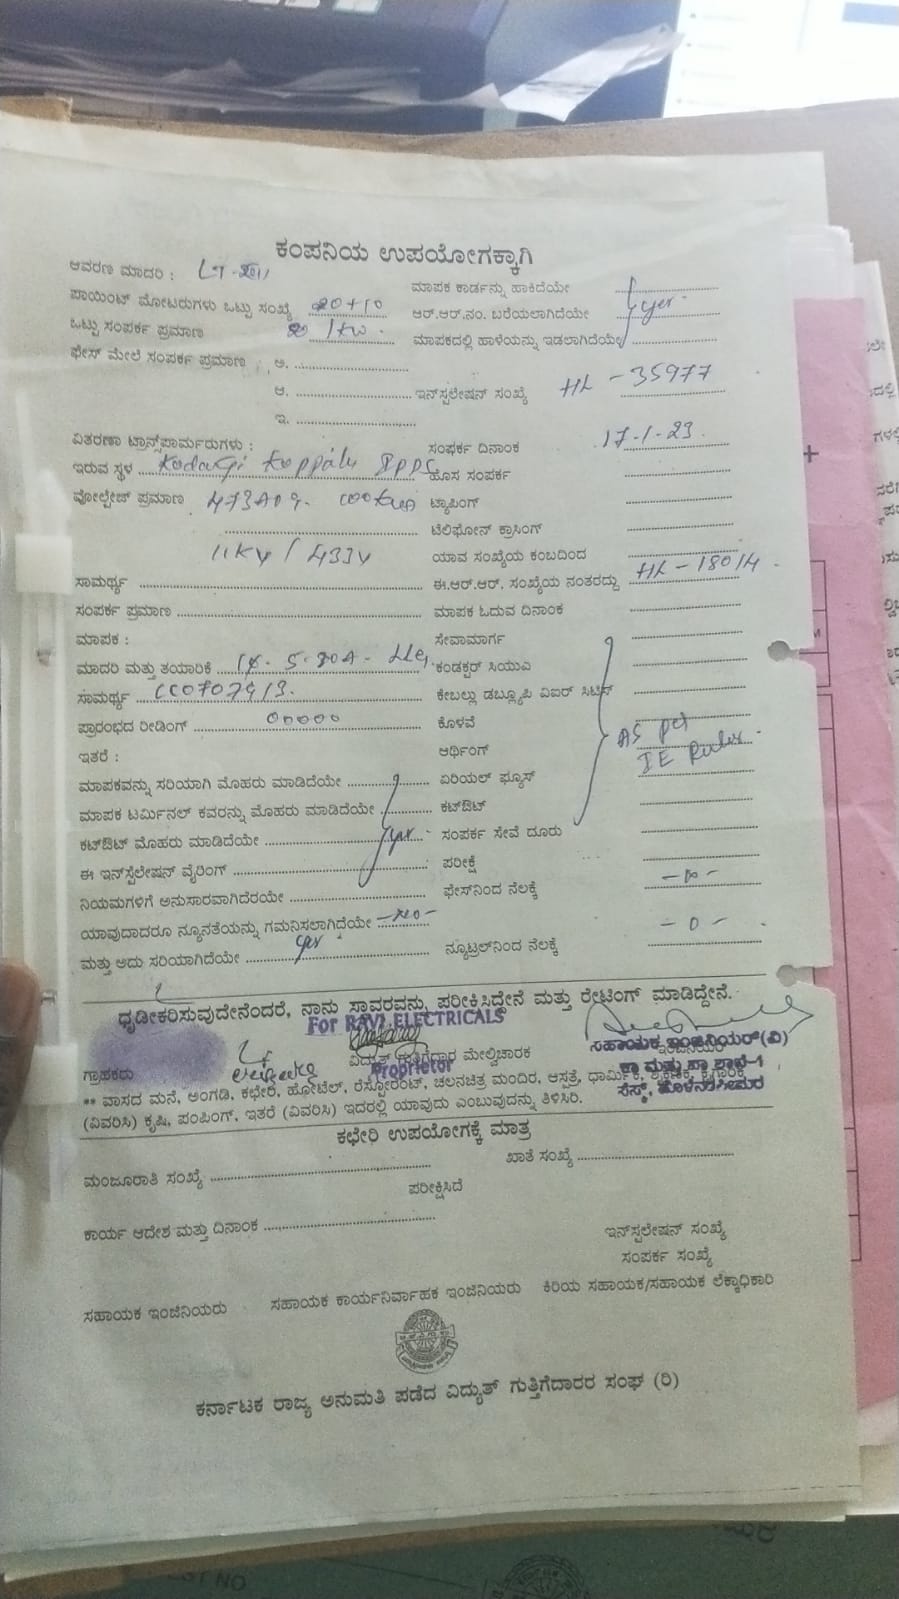 ಕಂಪನಿಯ ಉಪಯೋಗಕ್ಕಾಗಿ
ಆವರಣ ಮಾದರಿ : LT-
ಮಾಪಕ ಕಾರ್ಡನ್ನು ಹಾಕಿದೆಯೇ
ಪಾಯಿಂಟ್ ಮೋಟರುಗಳು ಒಟ್ಟು ಸಂಖ್ಯೆ 20+10
ಆರ್.ಆರ್.ನಂ. ಬರೆಯಲಾಗಿದೆಯೇ yes.
ಒಟ್ಟು ಸಂಪರ್ಕ ಪ್ರಮಾಣ 1kw.
ಮಾಪಕದಲ್ಲಿ ಹಾಳೆಯನ್ನು ಇಡಲಾಗಿದೆಯೇ
ಫೇಸ್ ಮೇಲೆ ಸಂಪರ್ಕ ಪ್ರಮಾಣ : ಅ.
ಆ. ಇನ್‌ಸ್ಪಲೇಷನ್ ಸಂಖ್ಯೆ HL - 35977
ಇ.
ವಿತರಣಾ ಟ್ರಾನ್ಸ್‌ಪಾರ್ಮರುಗಳು : ಸಂಪರ್ಕ ದಿನಾಂಕ 17-1-23.
ಇರುವ ಸ್ಥಳ Koppalu ಹೊಸ ಸಂಪರ್ಕ
ವೋಲ್ಟೇಜ್ ಪ್ರಮಾಣ ಟ್ಯಾಪಿಂಗ್
ಟೆಲಿಫೋನ್ ಕ್ರಾಸಿಂಗ್
11KV / 433V ಯಾವ ಸಂಖ್ಯೆಯ ಕಂಬದಿಂದ
ಸಾಮರ್ಥ್ಯ ಈ.ಆರ್.ಆರ್. ಸಂಖ್ಯೆಯ ನಂತರದ್ದು HL - 18014
ಸಂಪರ್ಕ ಪ್ರಮಾಣ ಮಾಪಕ ಓದುವ ದಿನಾಂಕ
ಮಾಪಕ : ಸೇವಾಮಾರ್ಗ
ಮಾದರಿ ಮತ್ತು ತಯಾರಿಕೆ ಕಂಡಕ್ಟರ್ ಸಿಯುವಿ
ಸಾಮರ್ಥ್ಯ ಕೇಬಲ್ಲು ಡಬ್ಲ್ಯೂಪಿ ವಿಐರ್ ಸಿಟಿಸ್
ಪ್ರಾರಂಭದ ರೀಡಿಂಗ್ 00000 ಕೊಳವೆ
ಇತರೆ : ಆರ್ಥಿಂಗ್ As per IE Rules.
ಮಾಪಕವನ್ನು ಸರಿಯಾಗಿ ಮೊಹರು ಮಾಡಿದೆಯೇ ಏರಿಯಲ್ ಫ್ಯೂಸ್
ಮಾಪಕ ಟರ್ಮಿನಲ್ ಕವರನ್ನು ಮೊಹರು ಮಾಡಿದೆಯೇ ಕಟ್‌ಔಟ್
ಕಟ್‌ಔಟ್ ಮೊಹರು ಮಾಡಿದೆಯೇ yes ಸಂಪರ್ಕ ಸೇವೆ ದೂರು
ಈ ಇನ್‌ಸ್ಪೆಲೇಷನ್ ವೈರಿಂಗ್ ಪರೀಕ್ಷೆ
ನಿಯಮಗಳಿಗೆ ಅನುಸಾರವಾಗಿದೆರಯೇ ಫೇಸ್‌ನಿಂದ ನೆಲಕ್ಕೆ
ಯಾವುದಾದರೂ ನ್ಯೂನತೆಯನ್ನು ಗಮನಿಸಲಾಗಿದೆಯೇ -No-
ಮತ್ತು ಅದು ಸರಿಯಾಗಿದೆಯೇ yes ನ್ಯೂಟ್ರಲ್‌ನಿಂದ ನೆಲಕ್ಕೆ - 0 -
ಧೃಡೀಕರಿಸುವುದೇನೆಂದರೆ, ನಾನು ಸ್ಥಾವರವನ್ನು ಪರೀಕ್ಷಿಸಿದ್ದೇನೆ ಮತ್ತು ರೇಟಿಂಗ್ ಮಾಡಿದ್ದೇನೆ.
For RAVI ELECTRICALS
ವಿದ್ಯುತ್ ಗುತ್ತಿಗೆದಾರ ಮೇಲ್ವಿಚಾರಕ
ಸಹಾಯಕ ಇಂಜಿನಿಯರ್(ವಿ)
ಗ್ರಾಹಕರು
Proprietor
ಕಾ ಮತ್ತು ಪಾ ಶಾಖೆ-1
ಸೆಸ್ಕ್, ಹೊಳೆನರಸೀಪುರ
** ವಾಸದ ಮನೆ, ಅಂಗಡಿ, ಕಛೇರಿ, ಹೋಟೆಲ್, ರೆಸ್ಟೋರೆಂಟ್, ಚಲನಚಿತ್ರ ಮಂದಿರ, ಆಸ್ಪತ್ರೆ, ಧಾರ್ಮಿಕ,
(ವಿವರಿಸಿ) ಕೃಷಿ, ಪಂಪಿಂಗ್, ಇತರೆ (ವಿವರಿಸಿ) ಇದರಲ್ಲಿ ಯಾವುದು ಎಂಬುವುದನ್ನು ತಿಳಿಸಿರಿ.
ಕಛೇರಿ ಉಪಯೋಗಕ್ಕೆ ಮಾತ್ರ
ಮಂಜೂರಾತಿ ಸಂಖ್ಯೆ ಖಾತೆ ಸಂಖ್ಯೆ
ಪರೀಕ್ಷಿಸಿದೆ
ಕಾರ್ಯ ಆದೇಶ ಮತ್ತು ದಿನಾಂಕ
ಇನ್‌ಸ್ಪಲೇಷನ್ ಸಂಖ್ಯೆ
ಸಂಪರ್ಕ ಸಂಖ್ಯೆ
ಸಹಾಯಕ ಇಂಜಿನಿಯರು ಸಹಾಯಕ ಕಾರ್ಯನಿರ್ವಾಹಕ ಇಂಜಿನಿಯರು ಕಿರಿಯ ಸಹಾಯಕ/ಸಹಾಯಕ ಲೆಕ್ಕಾಧಿಕಾರಿ
ಕರ್ನಾಟಕ ರಾಜ್ಯ ಅನುಮತಿ ಪಡೆದ ವಿದ್ಯುತ್ ಗುತ್ತಿಗೆದಾರರ ಸಂಘ (ರಿ)